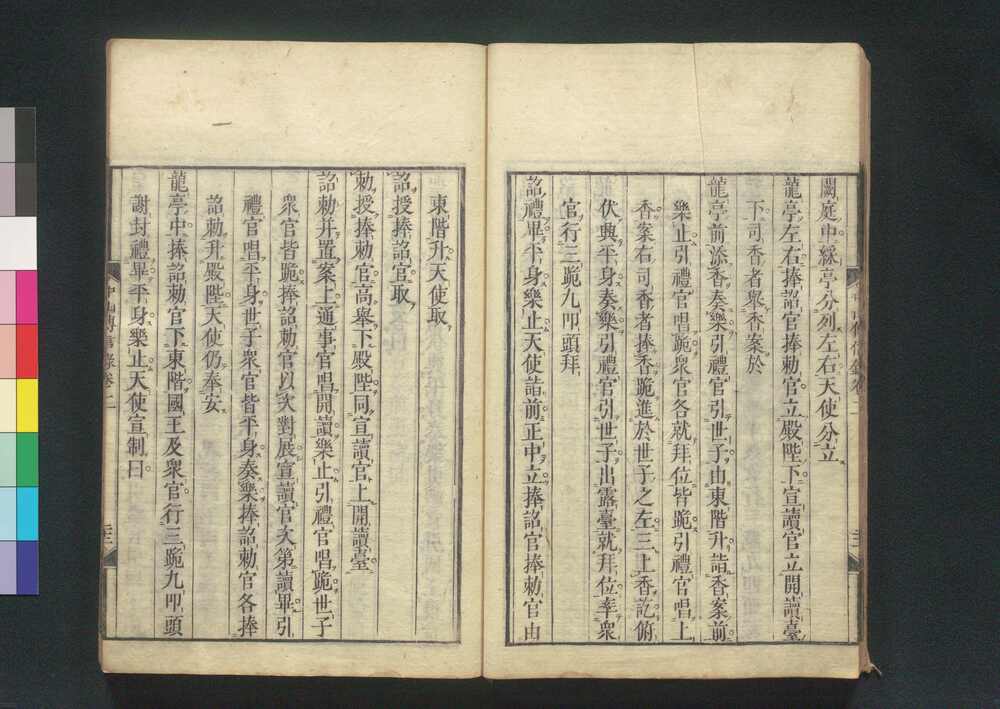 闕庭中綵亭分列左右天使分立
龍亭左右捧詔官捧勅官立殿陛下宣讀官立開讀臺
下司香者舉香案於
龍亭前添香奏樂引禮官引世子由東階升詣香案前
樂止引禮官唱跪衆官各就拜位皆跪引禮官唱上
香案右司香者捧香跪進於世子之左三上香訖俯
伏興平身奏樂引禮官引世子出露臺就拜位率衆
官行三跪九叩頭拜
詔禮畢平身樂止天使詣前正中立捧詔官捧勅官由
東階升天使取
詔授捧詔官取
勅授捧勅官高舉下殿陛同宣讀官上開讀臺
詔勅并置案上通事官唱開讀樂止引禮官唱跪世子
衆官皆跪捧詔勅官以次對展宣讀官次第讀畢引
禮官唱平身世子衆官皆平身奏樂捧詔勅官各捧
詔勅升殿陛天使仍奉安
龍亭中捧詔勅官下東階國王及衆官行三跪九叩頭
謝封禮畢平身樂止天使宣制曰
中山傳信錄卷二